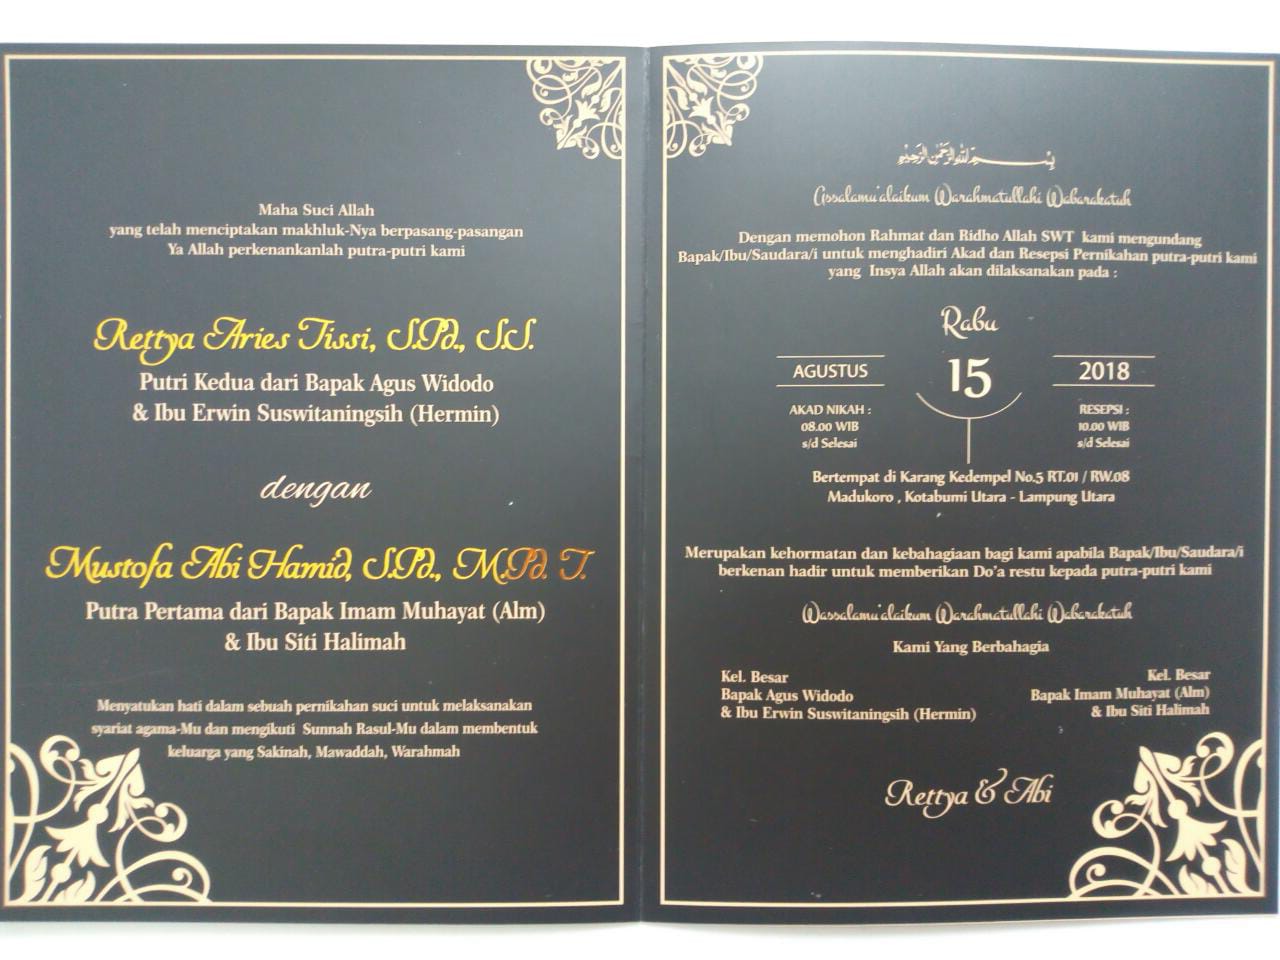 Maha Suci Allah
yang telah menciptakan makhluk-Nya berpasang-pasangan
Ya Allah perkenankanlah putra-putri kami
Rettya Aries Tissi, S.Pd., S.S.
Putri Kedua dari Bapak Agus Widodo
& Ibu Erwin Suswitaningsih (Hermin)
dengan
Mustofa Abi Hamid, S.Pd., M.Pd. T.
Putra Pertama dari Bapak Imam Muhayat (Alm)
& Ibu Siti Halimah
Menyatukan hati dalam sebuah pernikahan suci untuk melaksanakan
syariat agama-Mu dan mengikuti Sunnah Rasul-Mu dalam membentuk
keluarga yang Sakinah, Mawaddah, Warahmah
بسم الله الرحمن الرحيم
Assalamu'alaikum Warahmatullahi Wabarakatuh
Dengan memohon Rahmat dan Ridho Allah SWT kami mengundang
Bapak/Ibu/Saudara/i untuk menghadiri Akad dan Resepsi Pernikahan putra-putri kami
yang Insya Allah akan dilaksanakan pada :
Rabu
AGUSTUS 15 2018
AKAD NIKAH :
08.00 WIB
s/d Selesai
RESEPSI :
10.00 WIB
s/d Selesai
Bertempat di Karang Kedempel No.5 RT.01 / RW.08
Madukoro , Kotabumi Utara - Lampung Utara
Merupakan kehormatan dan kebahagiaan bagi kami apabila Bapak/Ibu/Saudara/i
berkenan hadir untuk memberikan Do'a restu kepada putra-putri kami
Wassalamu'alaikum Warahmatullahi Wabarakatuh
Kami Yang Berbahagia
Kel. Besar
Bapak Agus Widodo
& Ibu Erwin Suswitaningsih (Hermin)
Kel. Besar
Bapak Imam Muhayat (Alm)
& Ibu Siti Halimah
Rettya & Abi